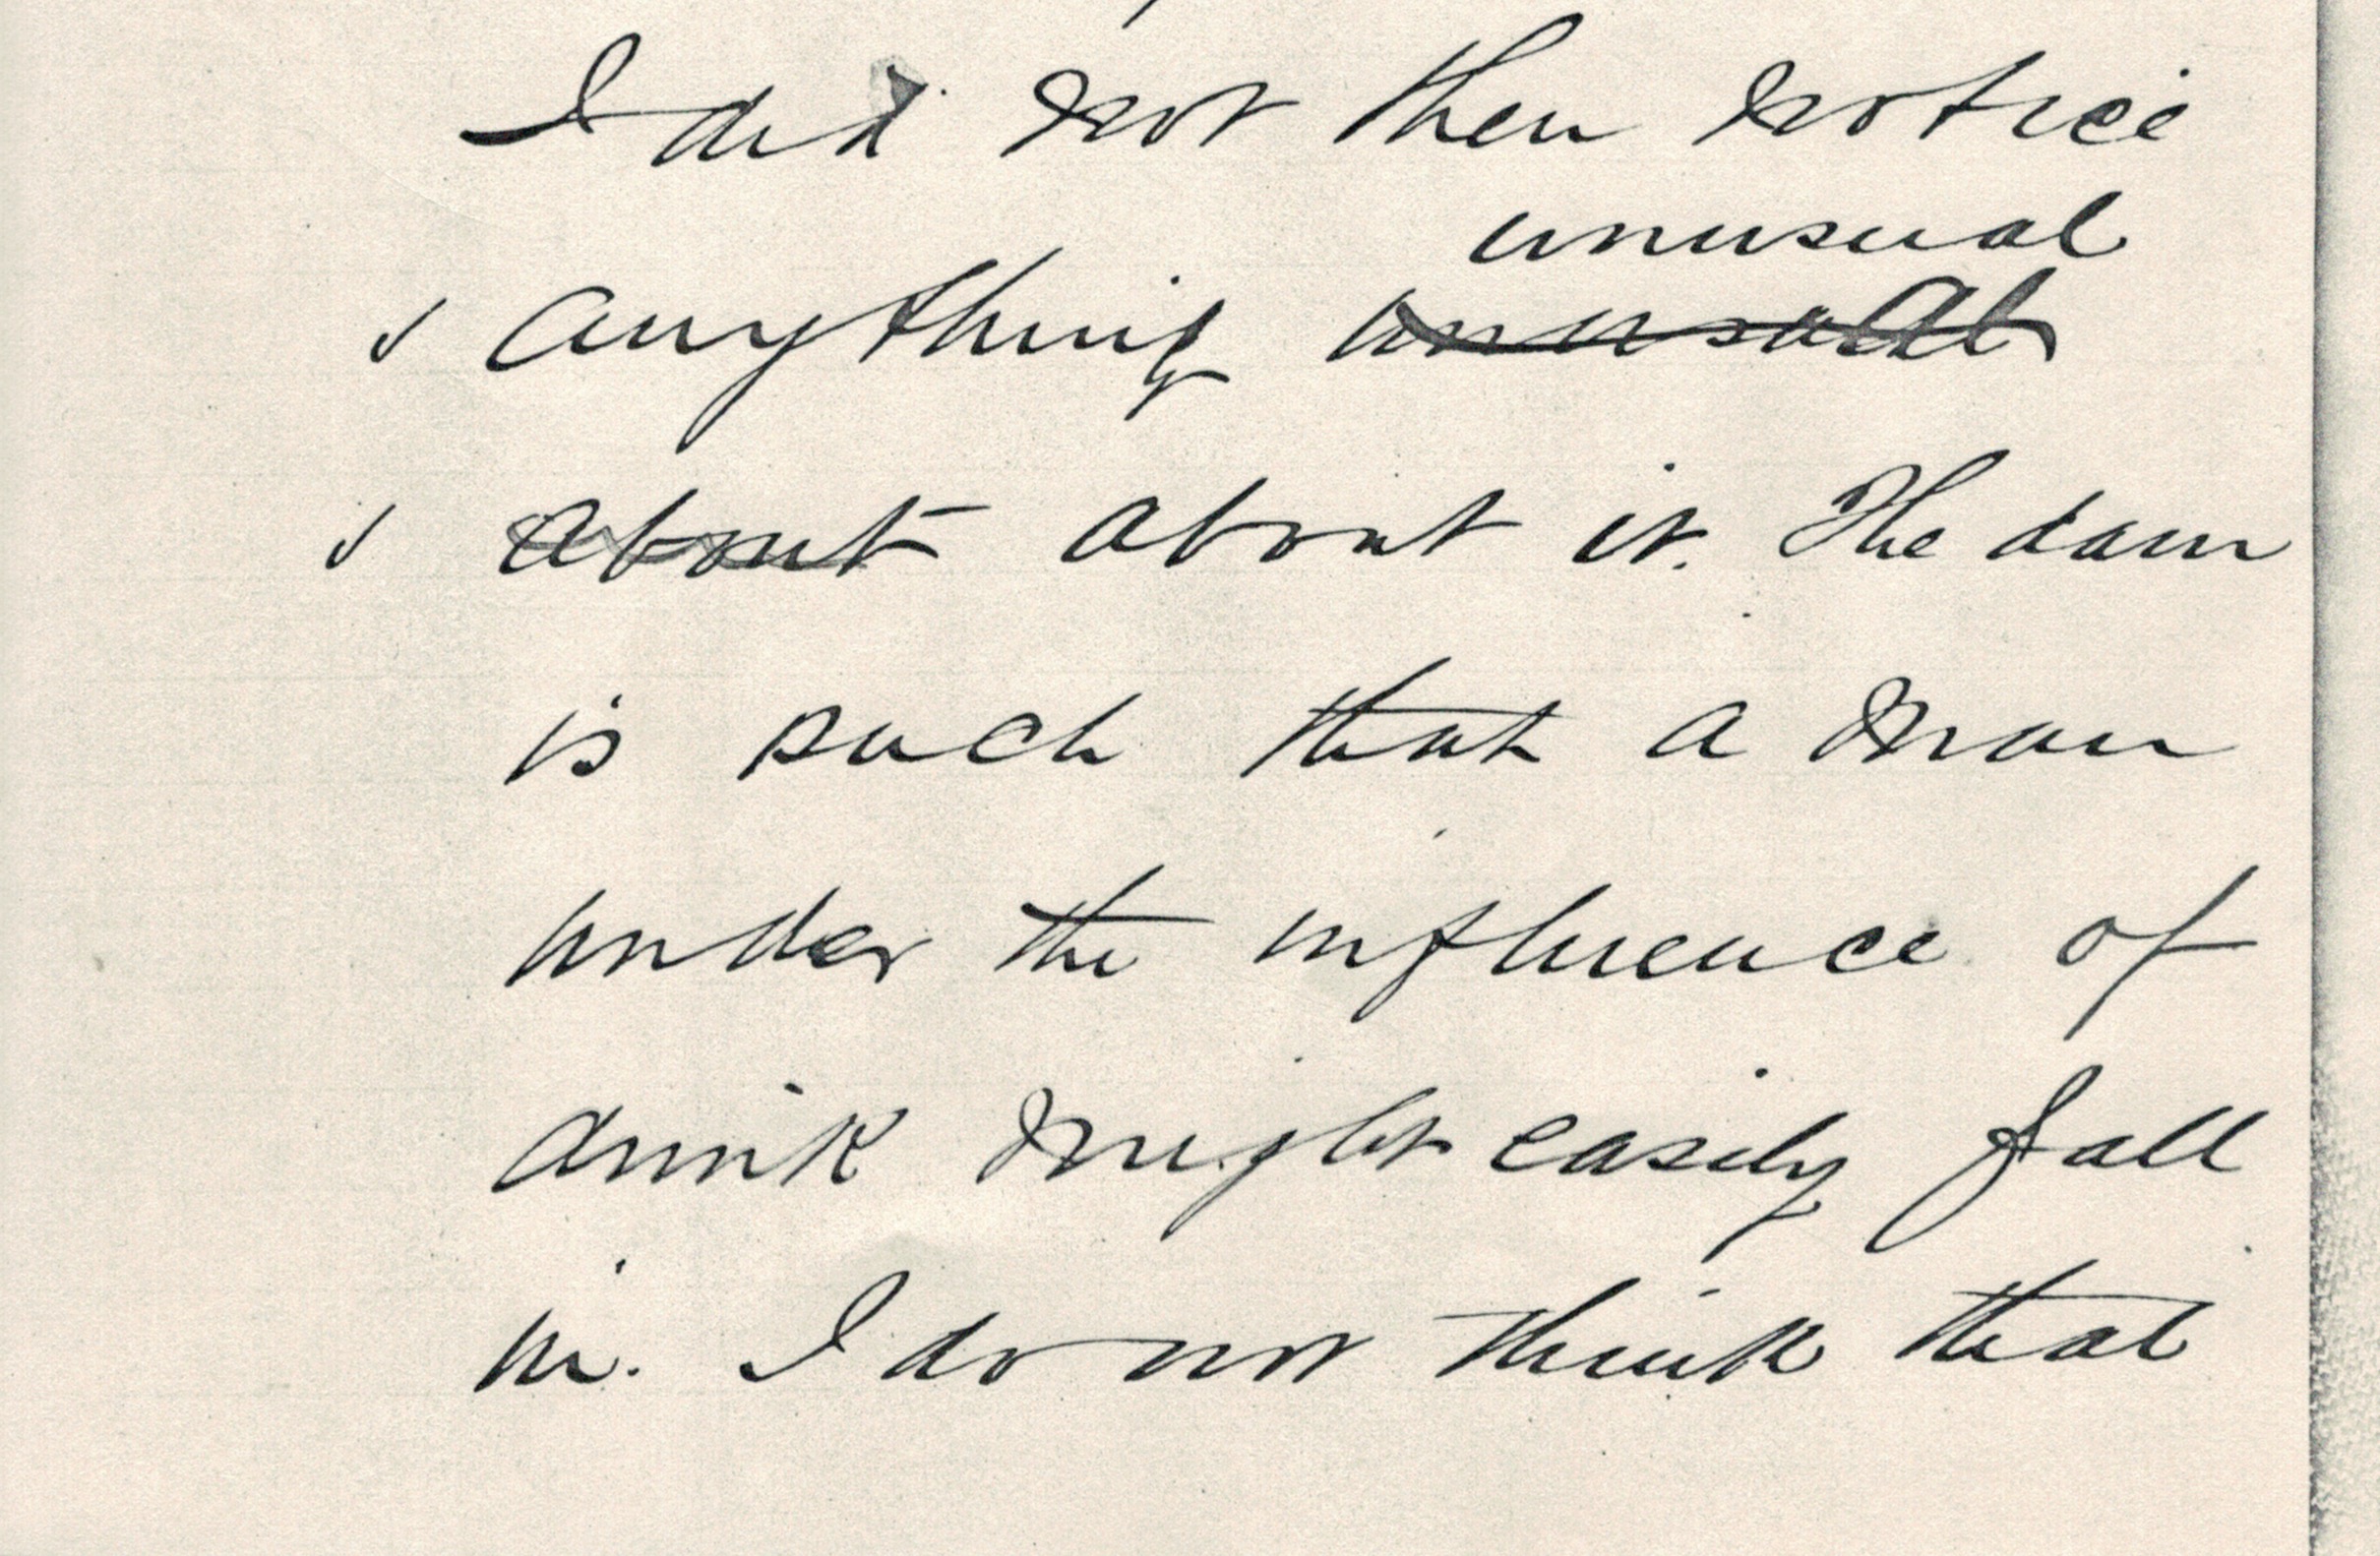 I did not then notice
unusual
anything
about about it. The dam
is such that a man
under the influence of
drink might easily fall
in. I do not think that